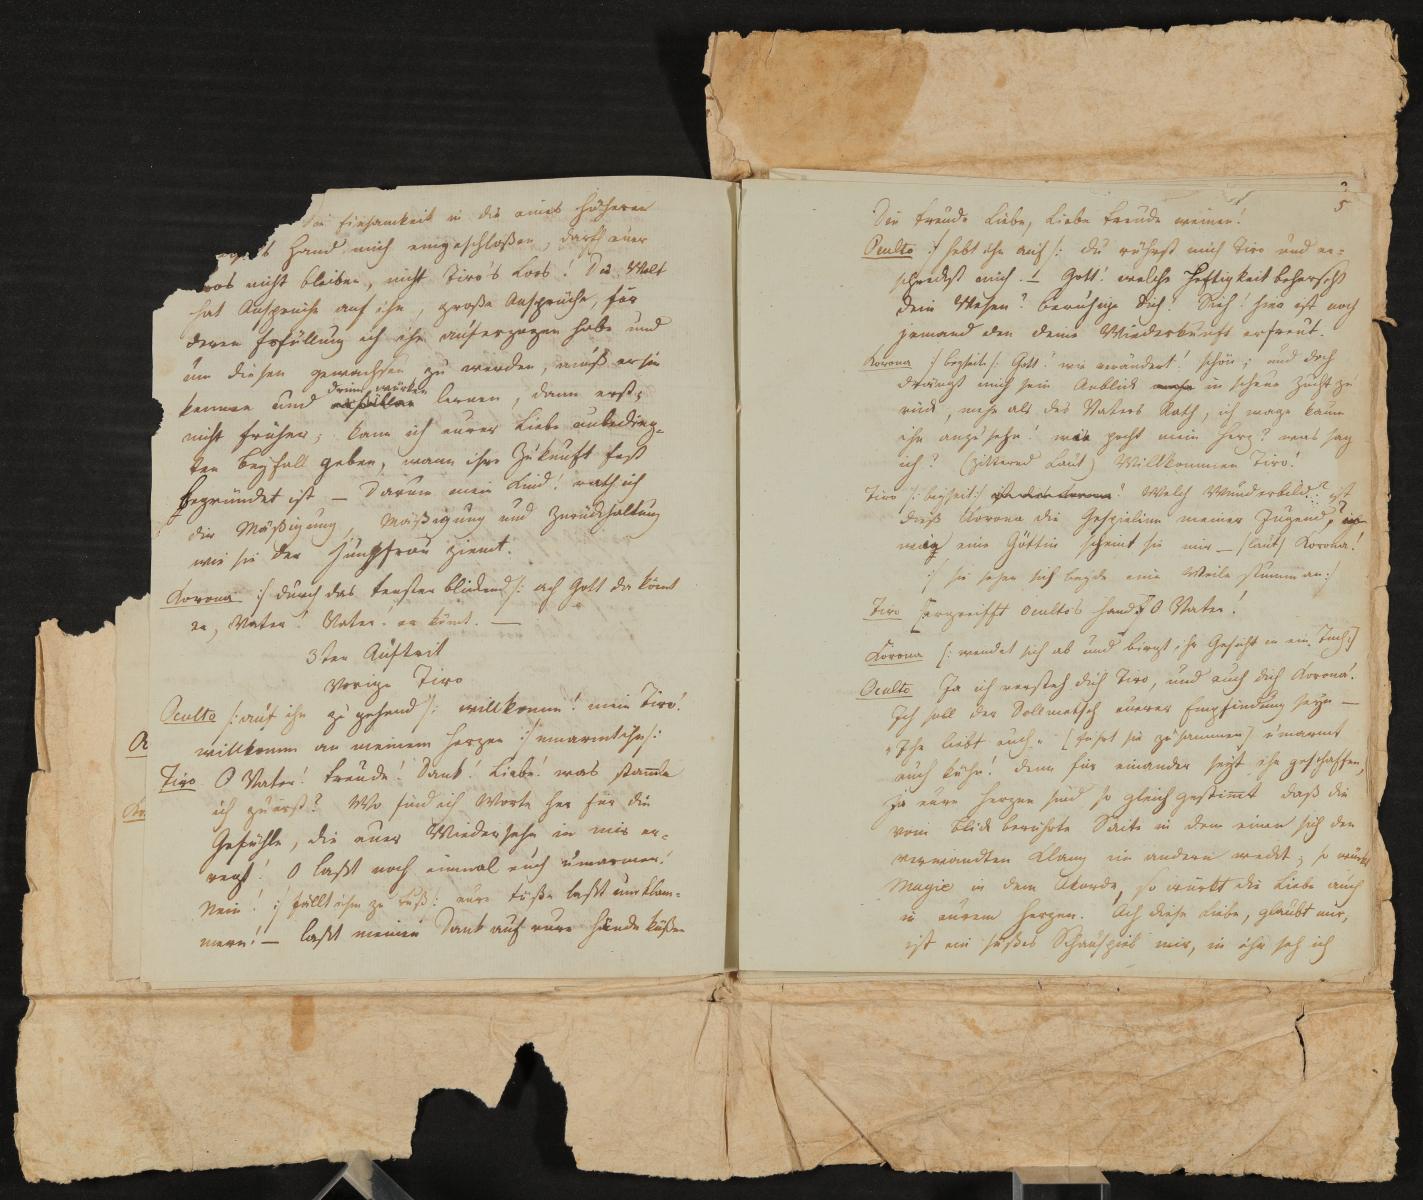 die Einsamkeit in die eines höheren
Hand mich eingeschloßen, darf euer
Loos nicht bleiben, nicht Tiro's Loos! Die Welt
hat Ansprüche auf ihn, große Ansprüche, für
deren Erfüllung ich ihn auferzogen habe und
um diesen gewachsen zu werden, muß er sie
kennen und drinn würken lernen, dann erst,
nicht früher, kann ich eurer Liebe unbeding-
ten Beyfall geben, wann ihre Zukunft fest
begründet ist — Darum mein Kind! rath ich
dir Mäßigung, Mäßigung und Zurückhaltung
wie sie der Jungfrau ziemt.
Korona :/ durch das Fenster blickend /: ach Gott da kömt
er, Vater! Vater! er kömt. —
3ter Auftrit
Vorige Tiro
Oculto /: auf ihn zu gehend /: willkomm! mein Tiro!
willkomm an meinem Herzen :/ umarmt ihn /:
Tiro O Vater! Freude! Dank! Liebe! was stamle
ich zuerst? Wo find ich Worte her für die
Gefühle, die euer Wiedersehn in mir er-
regt! O laßt noch einmal euch umarmen!
Nein! :/ fällt ihm zu Fuß /: eure Füße laßt umklam-
mern! — laßt meinen Dank auf eure Hände küßen
O
Ko
3
5
Die Freude Liebe, Liebe Freude weinen!
Oculto :/ hebt ihn auf /: du rührst mich Tiro und er-
schreckst mich. — Gott! welche Heftigkeit behersch
dein Wesen? beruhige dich! Sieh! hier ist noch
jemand den deine Wiederkunft erfreut.
Korona :/ beyseite /: Gott! wie verändert! schön; und doch
drängt mich sein Anblick in scheue Zucht zu
rück, mehr als des Vaters Rath, ich wage kaum
ihn anzusehn! wie pocht mein Herz? was sag
ich? (zitternd laut) Willkommen Tiro!
Tiro /: beyseit :/ ist die Korona! Welch Wunderbild? ist
dieß Korona die Gespielinn meiner Jugend?
eine Göttin scheint sie mir — /laut/ Korona!
:/ sie sehen sich beyde eine Weile stumm an :/
Tiro [ergreifft Ocultos Hand] O Vater!
Korona [: wendet sich ab und birgt ihr Gesicht in ein Tuch :]
Oculto Ja ich versteh dich Tiro, und auch dich Korona!
Ich soll der Dollmetsch euerer Empfindung seyn —
„Ihr liebt euch" [führt sie zusammen] umarmt
euch kühn! denn für einander seyd ihr geschaffen,
Ja eure Herzen sind so gleich gestimmt daß die
vom Blick berührte Saite in dem einen sich den
verwandten Klang im andern weckt; so würkt
Magie in dem Akorde, so würkt die Liebe auch
in eurem Herzen. Ach diese Liebe, glaubt mir,
ist ein süßes Schauspiel mir, in ihr seh ich